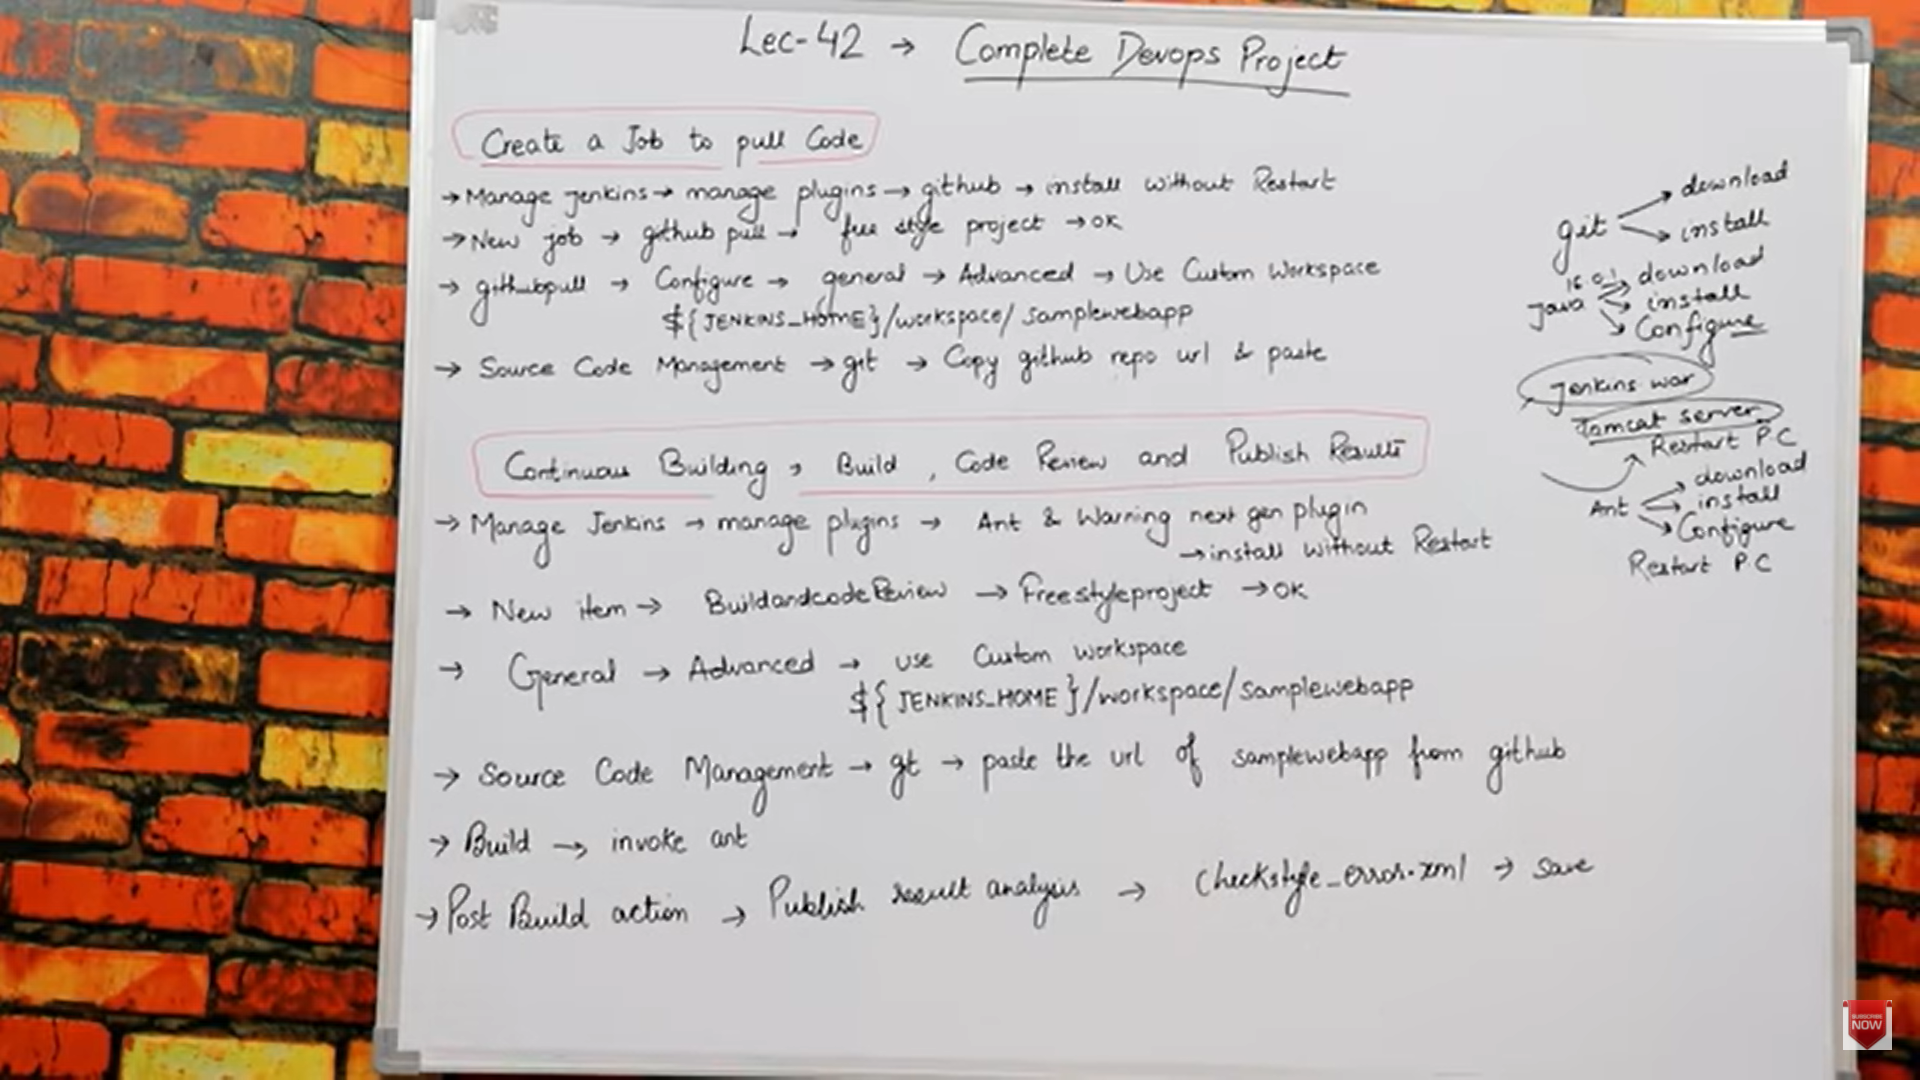 Lec-42 → Complete Devops Project
Create a Job to pull Code
→ Manage jenkins → manage plugins → github → install without Restart
→ New job → github pull → free style project → OK
→ githubpull → Configure → general → Advanced → Use Custom Workspace
${JENKINS_HOME}/workspace/samplewebapp
→ Source Code Management → git → Copy github repo url & paste
Continuous Building, Build, Code Review and Publish Results
→ Manage Jenkins → manage plugins → Ant & Warning next gen plugin
→ install without Restart
→ New item → BuildandcodeReview → Freestyleproject → OK
→ General → Advanced → use Custom workspace
${JENKINS_HOME}/workspace/samplewebapp
→ Source Code Management → gt → paste the url of samplewebapp from github
→ Build → invoke ant
→ Post Build action → Publish result analysis → Checkstyle_error.xml → save
git → download
→ install
Java → download
→ install
→ Configure
Jenkins war
Tomcat server
Restart PC
Ant → download
→ install
→ Configure
Restart PC
SUBSCRIBE
NOW